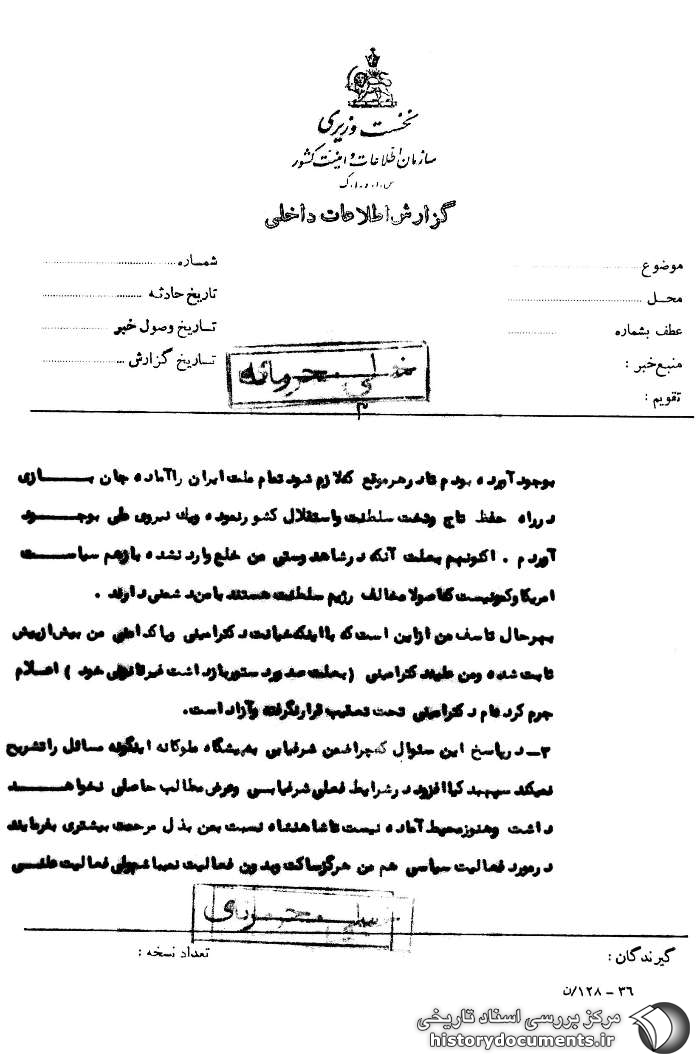 نخست وزیری
سازمان اطلاعات و امنیت کشور
س.ا.و.ا.ک
گزارش اطلاعات داخلی
موضوع
محل
عطف بشماره
منبع خبر :
تقویم :
شماره
تاریخ حادثه
تاریخ وصول خبر
تاریخ گزارش
خیلی محرمانه
۳
بوجود آورده بودم تا در هر موقع که لازم شود تمام ملت ایران را آماده جان بازی
در راه حفظ تاج و تخت سلطنت و استقلال کشور نموده و یک نیروی ملی بوجود
آوردم . اکنون هم بعلت آنکه در شاهدوستی من خللی وارد نشده باز هم سیاست
امریکا و کمونیست که اصولا مخالف رژیم سلطنت هستند با من دشمنی دارند .
بهر حال تاسف من از این است که با اینکه خیانت دکتر امینی و پاکدامنی من بیش از پیش
ثابت شده و من علیه دکتر امینی ( بعلت صدور دستور بازداشت غیر قانونی خود ) اعلام
جرم کرده ام دکتر امینی تحت تعقیب قرار نگرفته و آزاد است.
۳ـ در پاسخ این سئوال که چرا ضمن شرفیابی به پیشگاه ملوکانه اینگونه مسائل را تشریح
نمیکند سپهبد کیا افزود در شرایط فعلی شرفیابی و عرض مطالب حاصلی نخواهد
داشت و هنوز محیط آماده نیست تا شاهنشاه نسبت بمن بذل مرحمت بیشتری بفرمایند
در مورد فعالیت سیاسی هم من هرگز ساکت و بدون فعالیت نمیباشم ولی فعالیت علنی
خیلی محرمانه
گیرندگان :
تعداد نسخه :
۳۶ - ۱۲۸/ن
مرکز بررسی اسناد تاریخی
historydocuments.ir